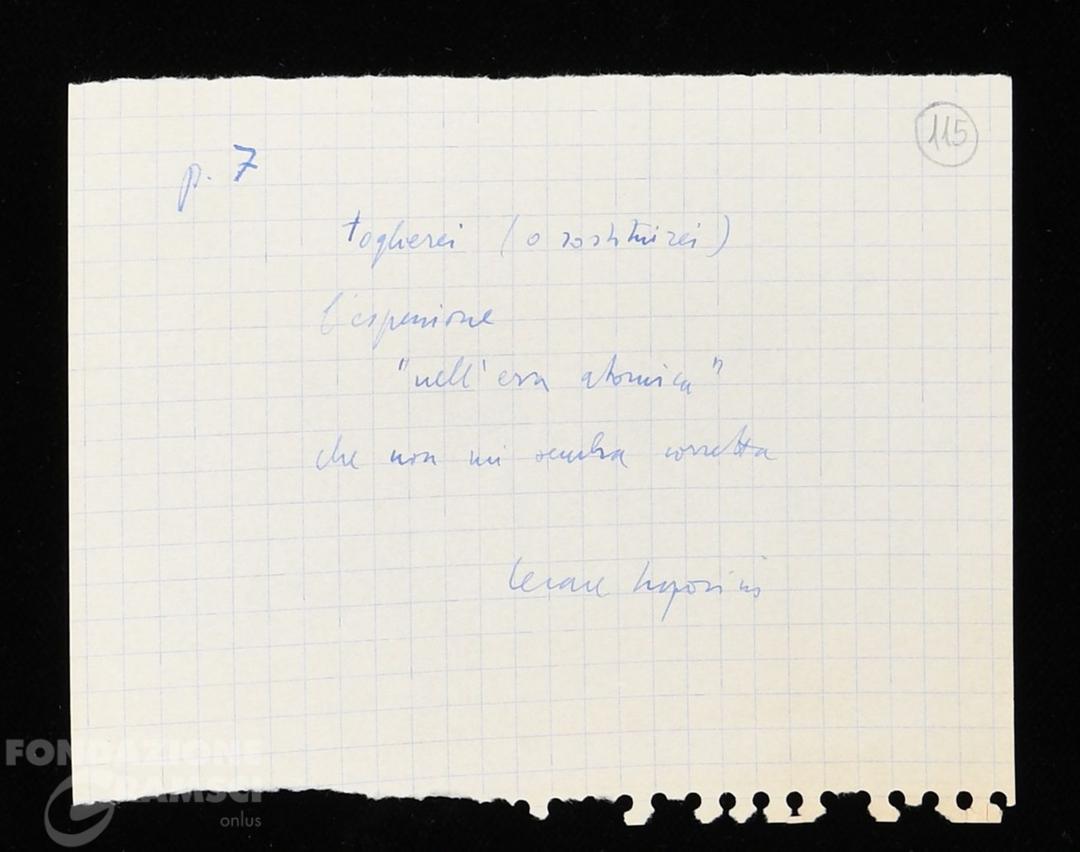 115
p. 7
toglierei (o sostituirei)
l'espressione
"nell'era atomica"
che non mi sembra corretta
Cesare Luporini
FONDAZIONE
GRAMSCI
onlus